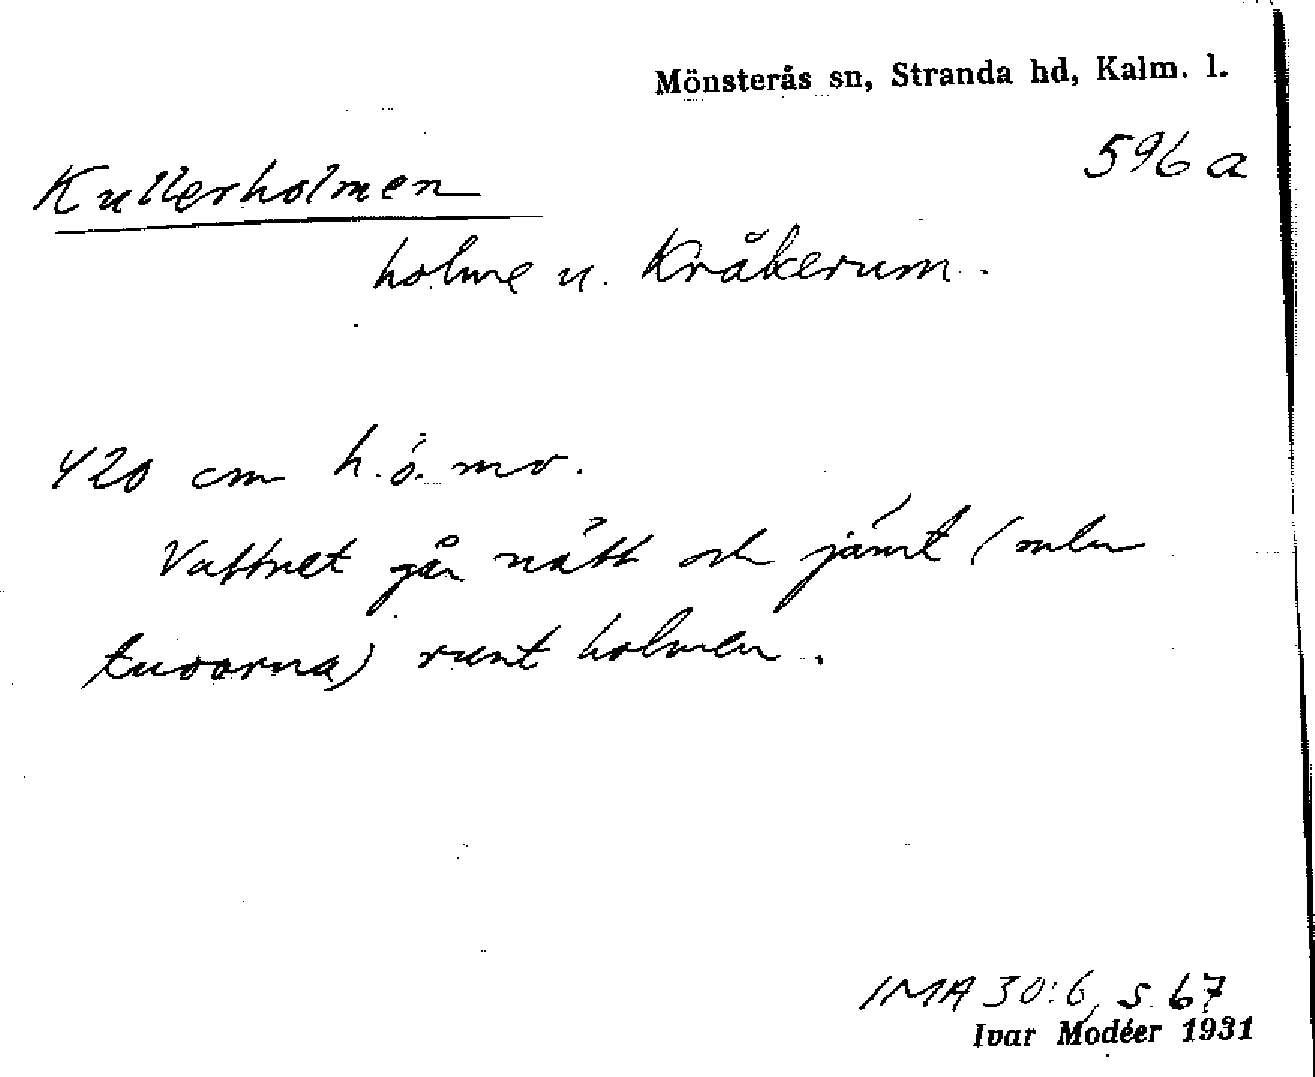 Mönsterås sn, Stranda hd, Kalm. l.
596 a
Kullerholmen
holme u. Kråkerum.
420 cm h.ö.mv.
Vattnet går nätt och jämt (mlm
tuvorna) runt holmen.
IMA 30:6, s. 67
Ivar Modéer 1931